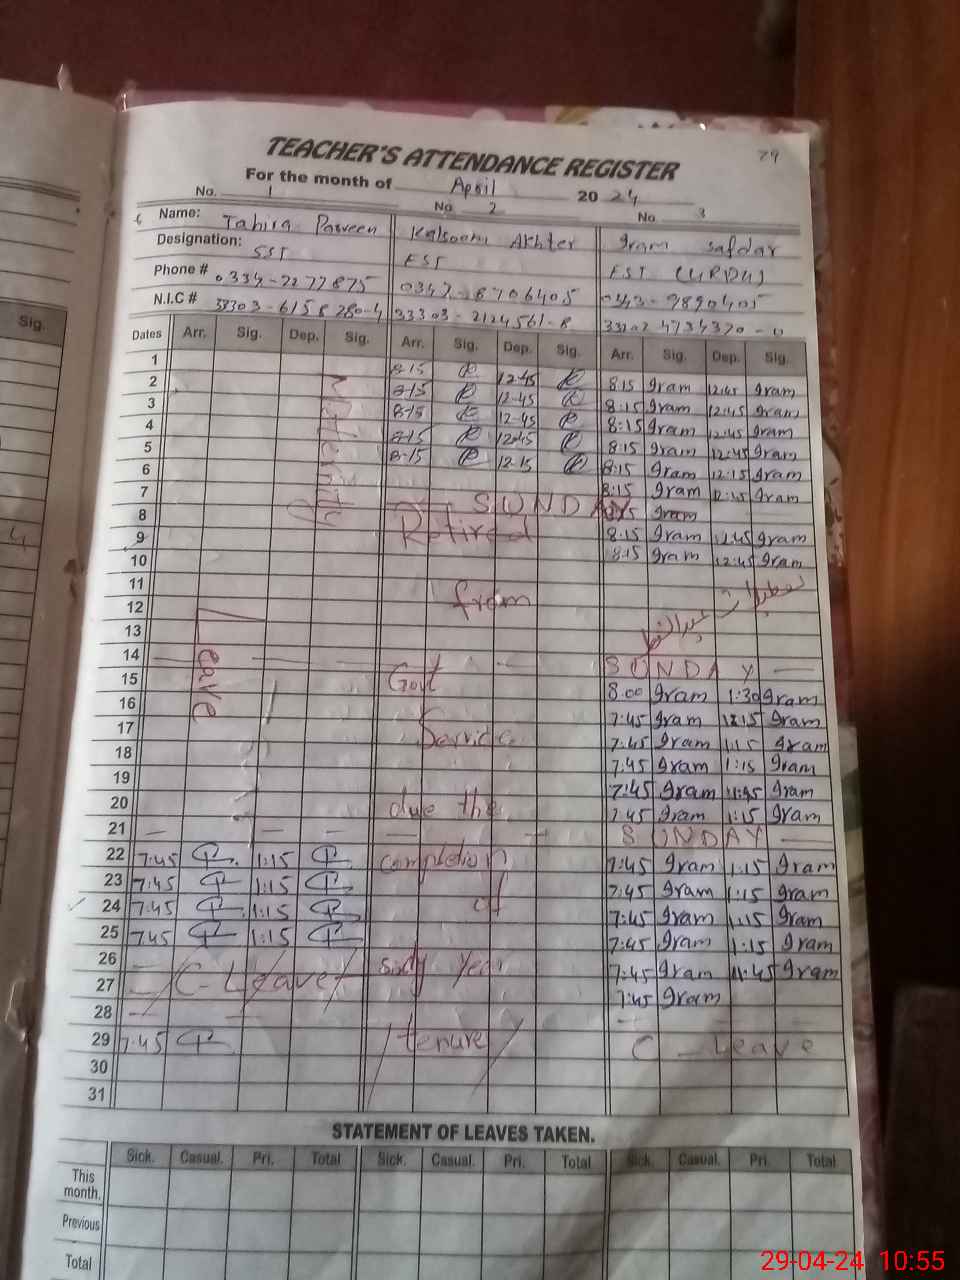 29
TEACHER'S ATTENDANCE REGISTER
For the month of April 2024
No. 1 No 2 No 3
Name: Tahira Parveen Kalsoom Akhter Iram Safdar
Designation: SST EST EST (URDU)
Phone # 0347-8706405
N.I.C # 33303-2124561-8
Dates Arr. Sig. Dep. Sig. Arr. Sig. Dep. Sig. Arr. Sig. Dep. Sig.
Sig.
1 8-15 12-45 8:15 Iram 12:45 Iram
2 8-15 12-45 8:15 Iram 12:45 Iram
3 8-15 12-45 8:15 Iram 12:45 Iram
4 8-15 12:45 8:15 Iram 12:45 Iram
5 8-15 12-15 8:15 Iram 12:15 Iram
6 8:15 Iram 12:45 Iram
7 SUNDAY
8 Retired Iram
9 8:15 Iram 12:45 Iram
10 8:15 Iram 12:45 Iram
11
12 from
13
14 Leave SUNDAY
15 Govt 8:00 Iram 1:30 Iram
16 7:45 Iram Iram
17 Service 7:45 Iram 1:15 Iram
18 7:45 Iram 1:15 Iram
19 7:45 Iram 11:45 Iram
20 due the 7:45 Iram 1:15 Iram
21 SUNDAY
22 7:45 1:15 completion 7:45 Iram 1:15 Iram
23 7:45 1:15 7:45 Iram 1:15 Iram
24 7:45 1:15 of 7:45 Iram 1:15 Iram
25 7:45 1:15 7:45 Iram 1:15 Iram
26 year 7:45 Iram 11:45 Iram
27 C-Leave 7:45 Iram
28
29 7:45 tenure C-Leave
30
31
STATEMENT OF LEAVES TAKEN.
Sick. Casual. Pri. Total Sick. Casual. Pri. Total Sick. Casual. Pri. Total
This month.
Previous
Total
29-04-24 10:55